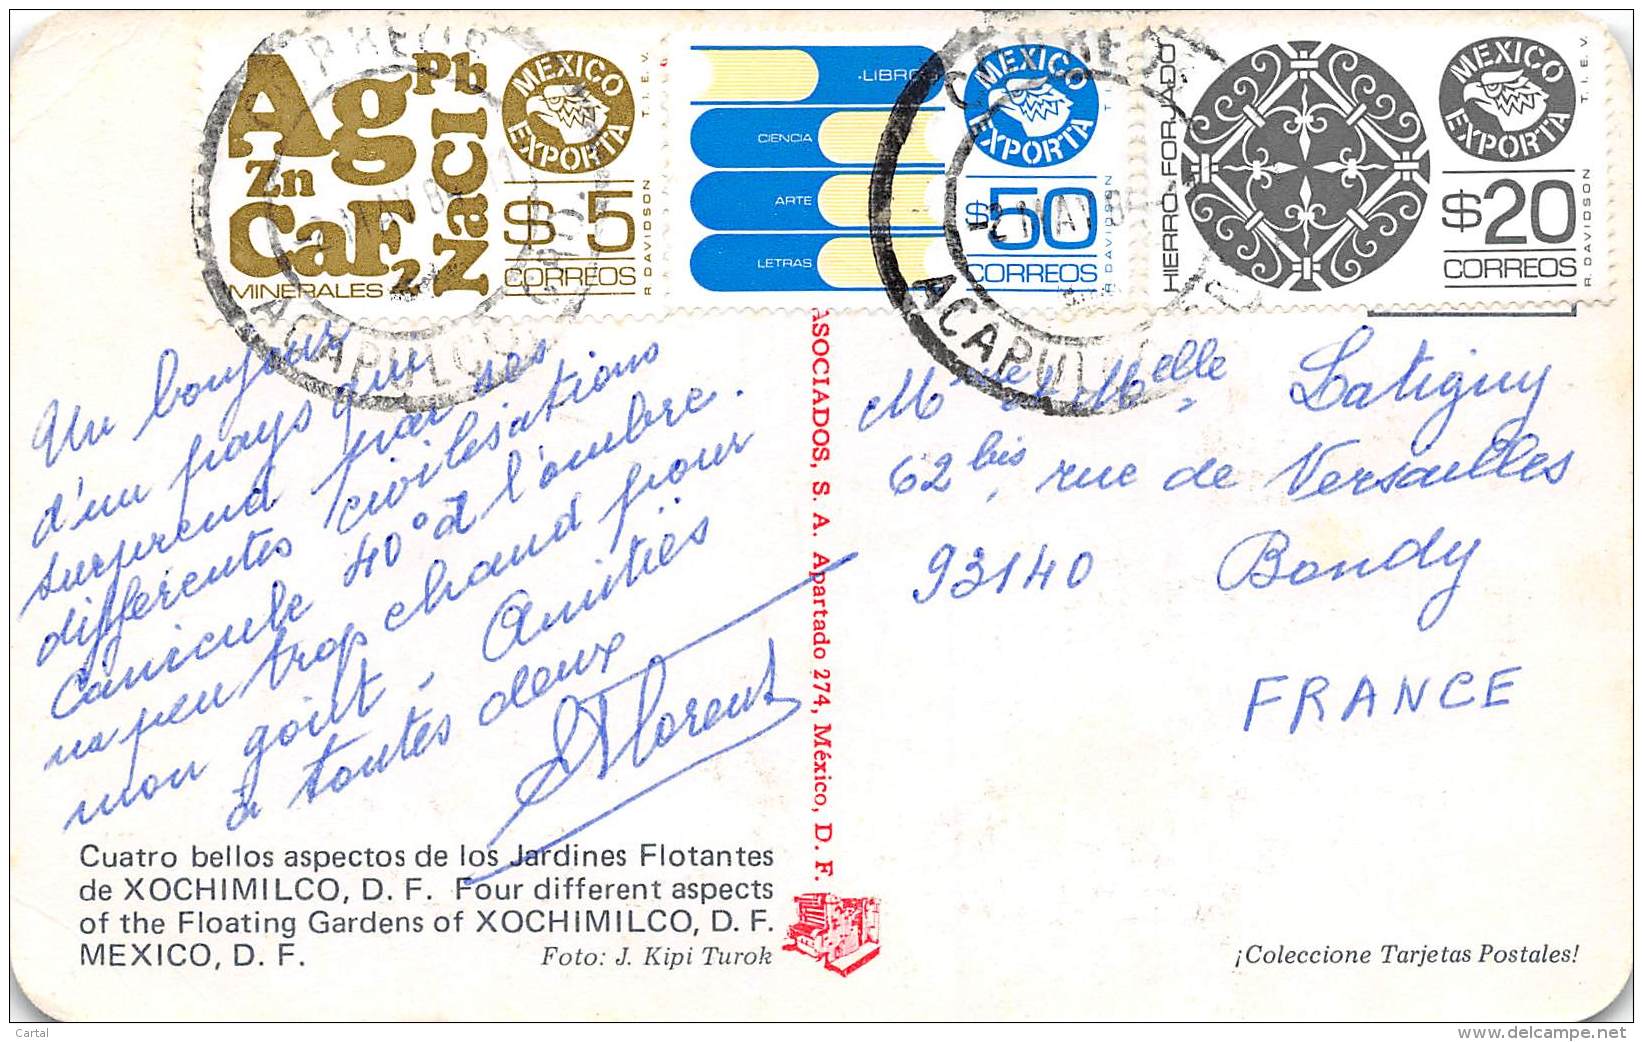 Ag Pb
Zn
CaF2
NaCl
MINERALES
MEXICO EXPORTA
T.I.E.V.
$5
CORREOS
R. DAVIDSON
LIBROS
CIENCIA
ARTE
LETRAS
MEXICO EXPORTA
T.I.
$50
CORREOS
R. DAVIDSON
HIERRO FORJADO
MEXICO EXPORTA
T.I.E.V.
$20
CORREOS
R. DAVIDSON
ACAPULCO
ACAPULCO
Un bonjour
d'un pays qui
surprend par ses
différentes civilisations
Canicule 40° à l'ombre.
un peu trop chaud pour
mon goût, Amitiés
à toutes deux
Florent
Mme et Melle Latiguy
62 bis, rue de Versailles
93140 Bondy
FRANCE
ASOCIADOS, S. A. Apartado 274, México, D. F.
Cuatro bellos aspectos de los Jardines Flotantes
de XOCHIMILCO, D. F. Four different aspects
of the Floating Gardens of XOCHIMILCO, D. F.
MEXICO, D. F.
Foto: J. Kipi Turok
¡Coleccione Tarjetas Postales!
Cartal
www.delcampe.net